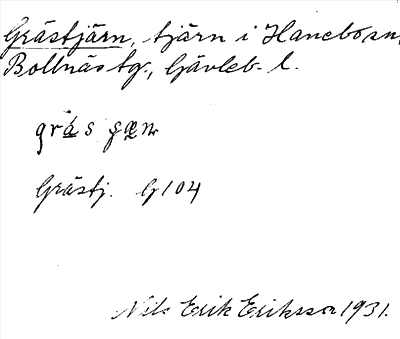 Grästjärn, tjärn i Hanebo sn,
Bollnäs tg., Gävleb. l.
Grästj. G 104
Nils Erik Eriksson 1931.